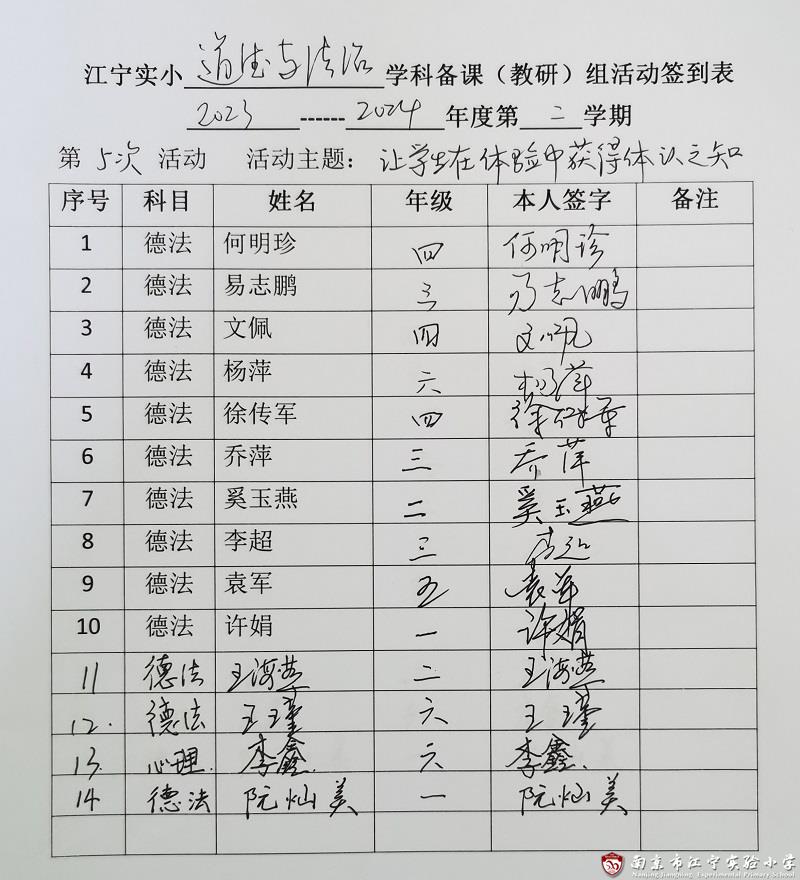 江宁实小 道德与法治 学科备课（教研）组活动签到表
2023 ------ 2024 年度第 二 学期
第 5次 活动 活动主题： 让学生在体验中获得体认之知
序号 科目 姓名 年级 本人签字 备注
1 德法 何明珍 四 何明珍
2 德法 易志鹏 三 易志鹏
3 德法 文佩 四 文佩
4 德法 杨萍 六 杨萍
5 德法 徐传军 四 徐传军
6 德法 乔萍 三 乔萍
7 德法 奚玉燕 二 奚玉燕
8 德法 李超 三 李超
9 德法 袁军 五 袁军
10 德法 许娟 一 许娟
11 德法 王海燕 二 王海燕
12. 德法 王瑾 六 王瑾
13. 心理. 李鑫. 六 李鑫.
14 德法 阮灿美 一 阮灿美
南京市江宁实验小学
Nanjing Jiangning Experimental Primary School